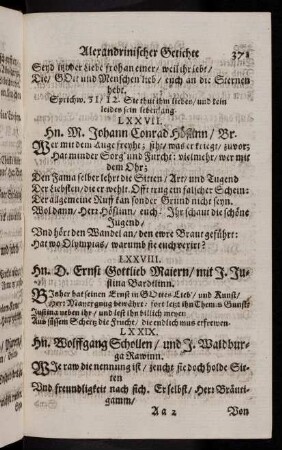 Alexandrinischer Getichte 371
Seyd in zwer Liebe froh an einer / weil ihr lebt /
Die / GOtt und Menschen lieb / euch an die Sternen
hebt.
Sprichw. 31 / 12. Sie thut ihm lieben / und kein
leides sein leben lang.
LXXVII.
Hn. M. Johann Conrad Hößlinn / Br.
Wer mit dem Auge freyhet / siht / was er kriegt / zuvor;
Hat minder Sorg' und Furcht: vielmehr / wer mit
dem Ohr;
Den Fama selber lehrt die Sitten / Art / und Tugend
Der Liebsten / die er wehlt. Offt trüng ein falscher Schein:
Der allgemeine Ruff kan sonder Grund nicht seyn.
Woldann / Herr Hößlinn / euch: Ihr schaut die schöne
Jugend /
Und hört den Wandel an / den ewre Braut geführt:
Hat wo Olympias / warumb sie euch vexirt?
LXXVIII.
Hn. D. Ernst Gottlieb Maiern / mit J. Ju-
stina Bardtlinn.
BIsher hat seinen Ernst in GOttes Lieb / und Kunst /
Herr Mayer gnug bewährt: jetzt letzt ihn Themis Gunst
Justina neben ihr / und lest ihn billich meyen
Aus süssem Schertz die Frucht / die endlich mus erfrewen.
LXXIX.
Hn. Wolffgang Schollen / und J. Waldbur-
ga Rawinn.
WIe raw die nennung ist / zeucht sie doch holde Sit-
ten
Und freundligkeit nach sich. Er selbst / Herr Bräuti-
gamm /
Aa 2 Von